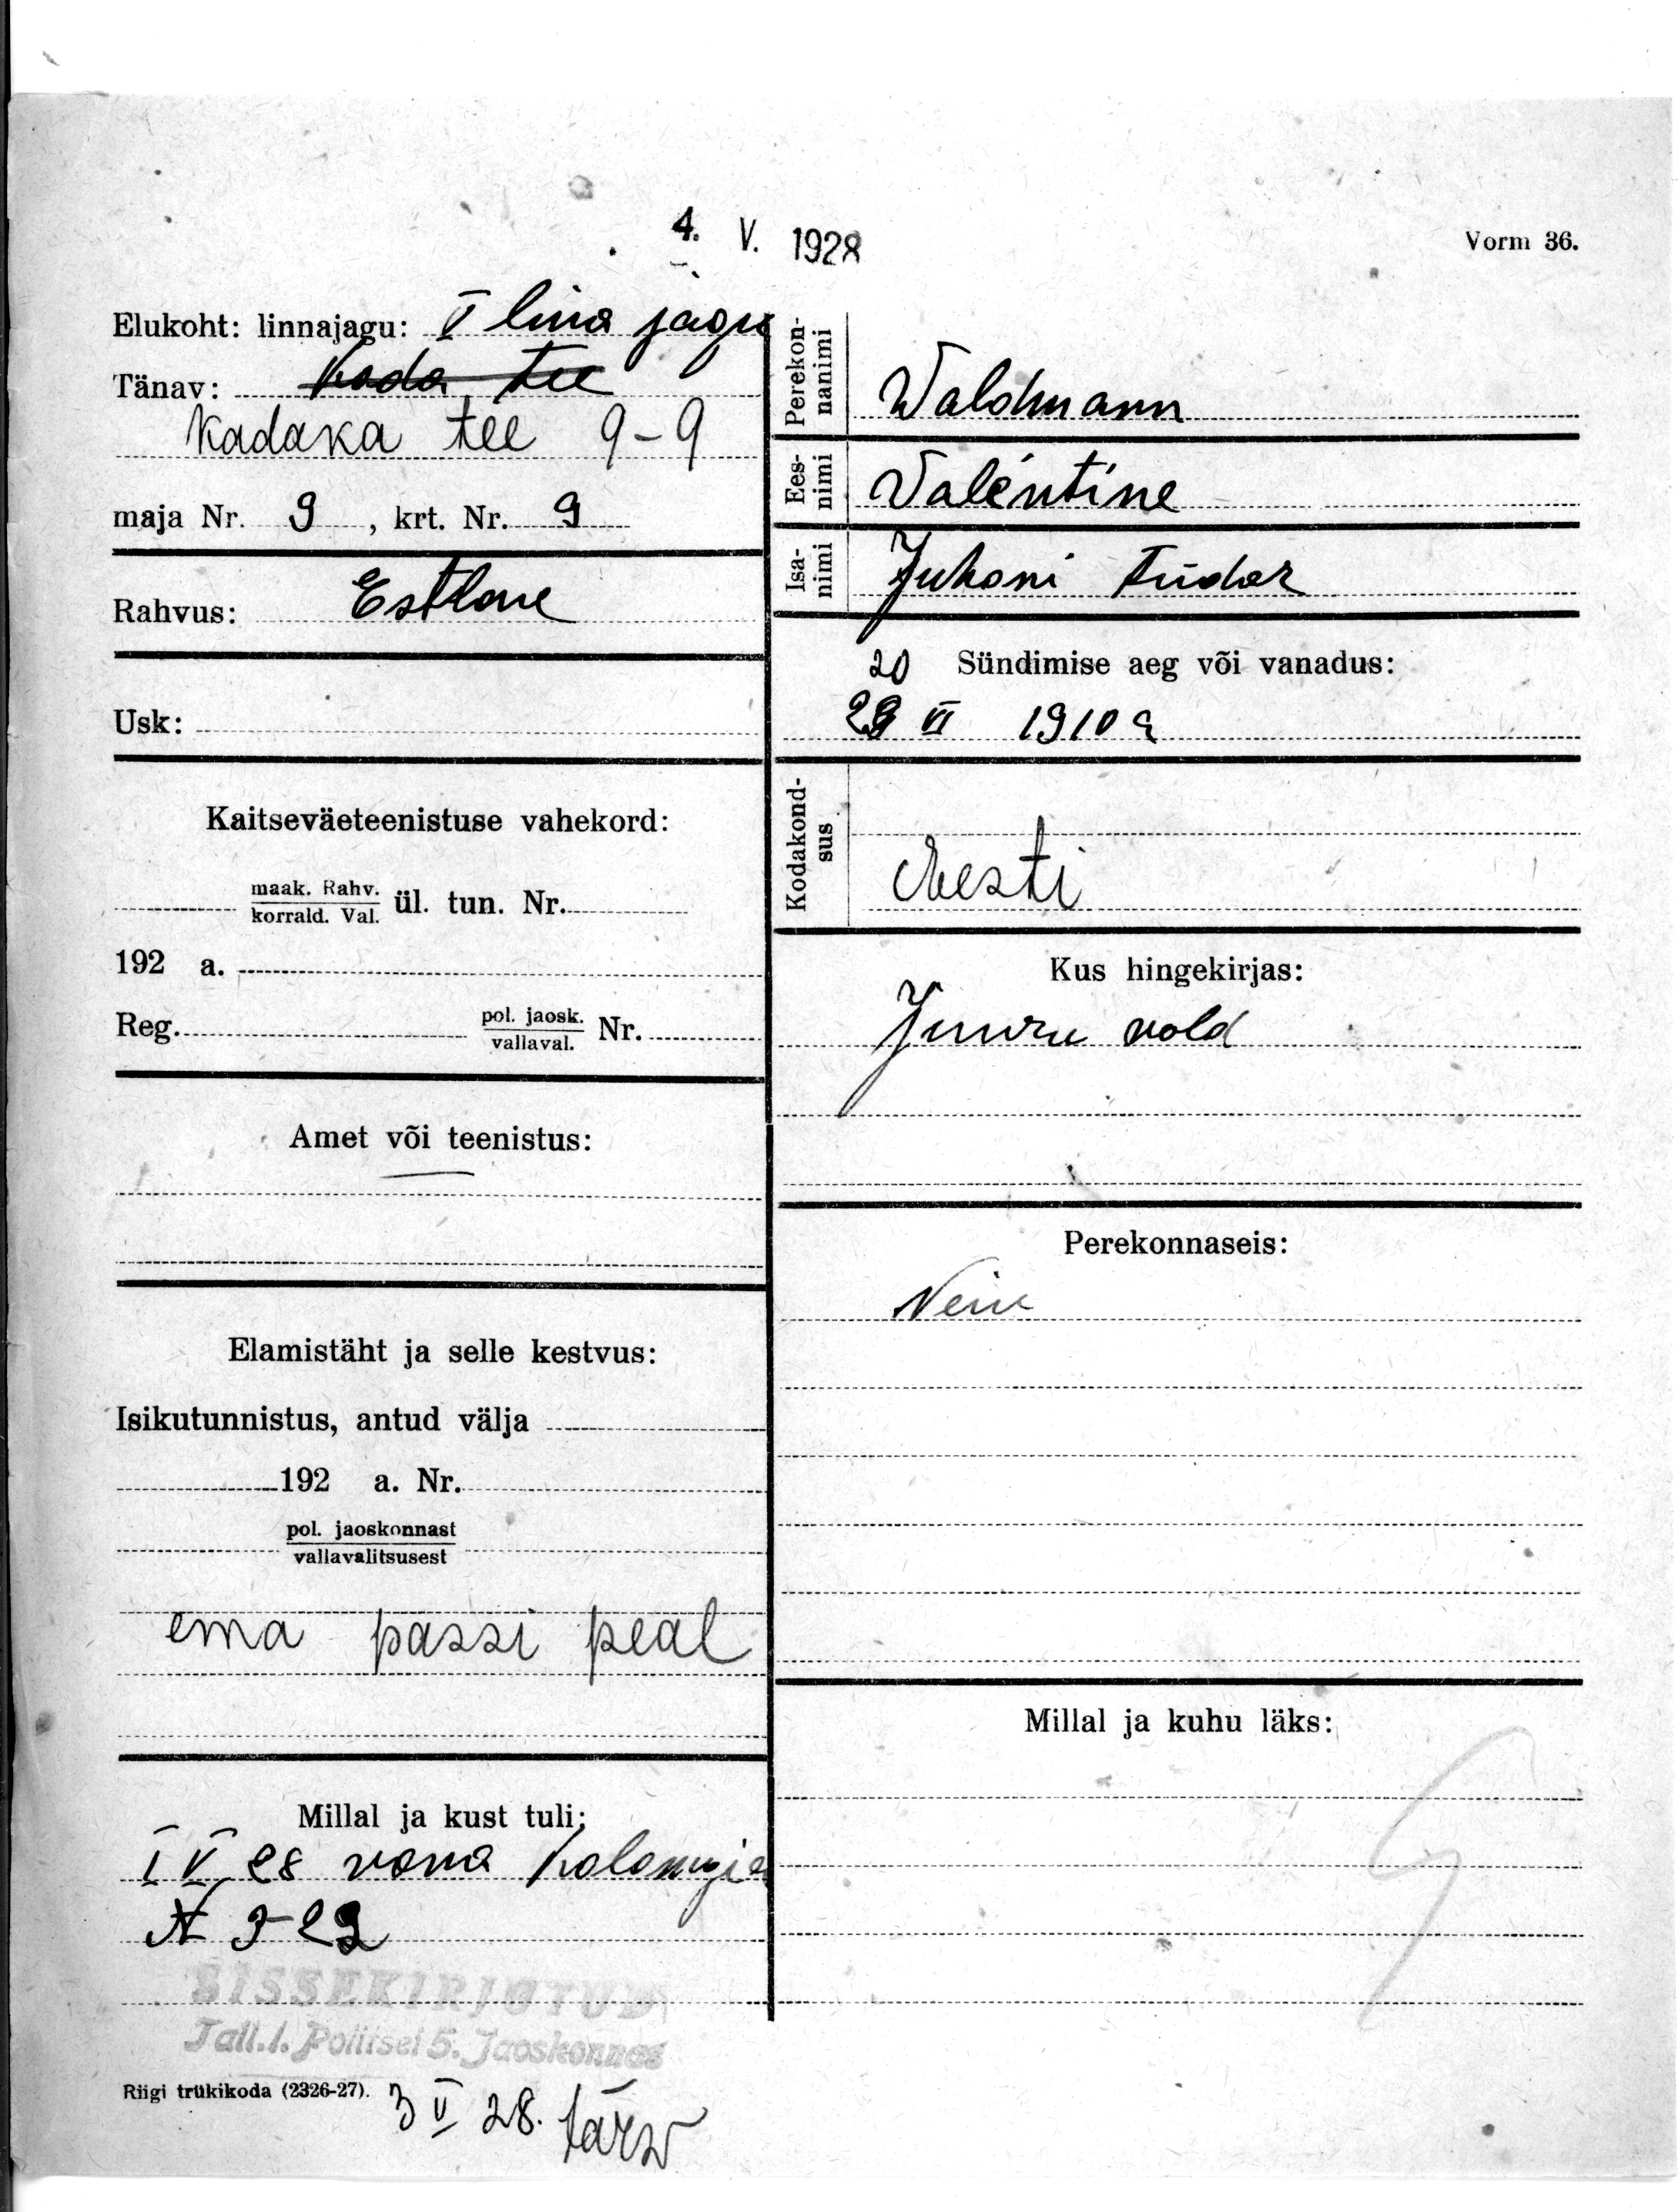 4. V. 1928
Vorm 36.
Elukoht: linnajagu: V lina jagu
Tänav: Kada tee
Kadaka tee 9-9
maja Nr. 9, krt. Nr. 9
Rahvus: Estlane
Usk:
Kaitseväeteenistuse vahekord:
maak. Rahv.
korrald. Val. ül. tun. Nr.
192 a.
Reg. pol. jaosk.
vallaval. Nr.
Amet või teenistus:
Elamistäht ja selle kestvus:
Isikutunnistus, antud välja
192 a. Nr.
pol. jaoskonnast
vallavalitsusest
ema passi peal
Millal ja kust tuli:
I V 28 vana
SISSEKIRJOTUD
Tall. l. Politsei 5. Jaoskonnas
Riigi trükikoda (2326-27).
3 V 28.
Perekon-
nanimi
Waldmann
Ees-
nimi
Valentine
Isa-
nimi
Juhani tüdar
20 Sündimise aeg või vanadus:
VI 1910 a
Kodakond-
sus
Eesti
Kus hingekirjas:
Juuru vald
Perekonnaseis:
Neiu
Millal ja kuhu läks: